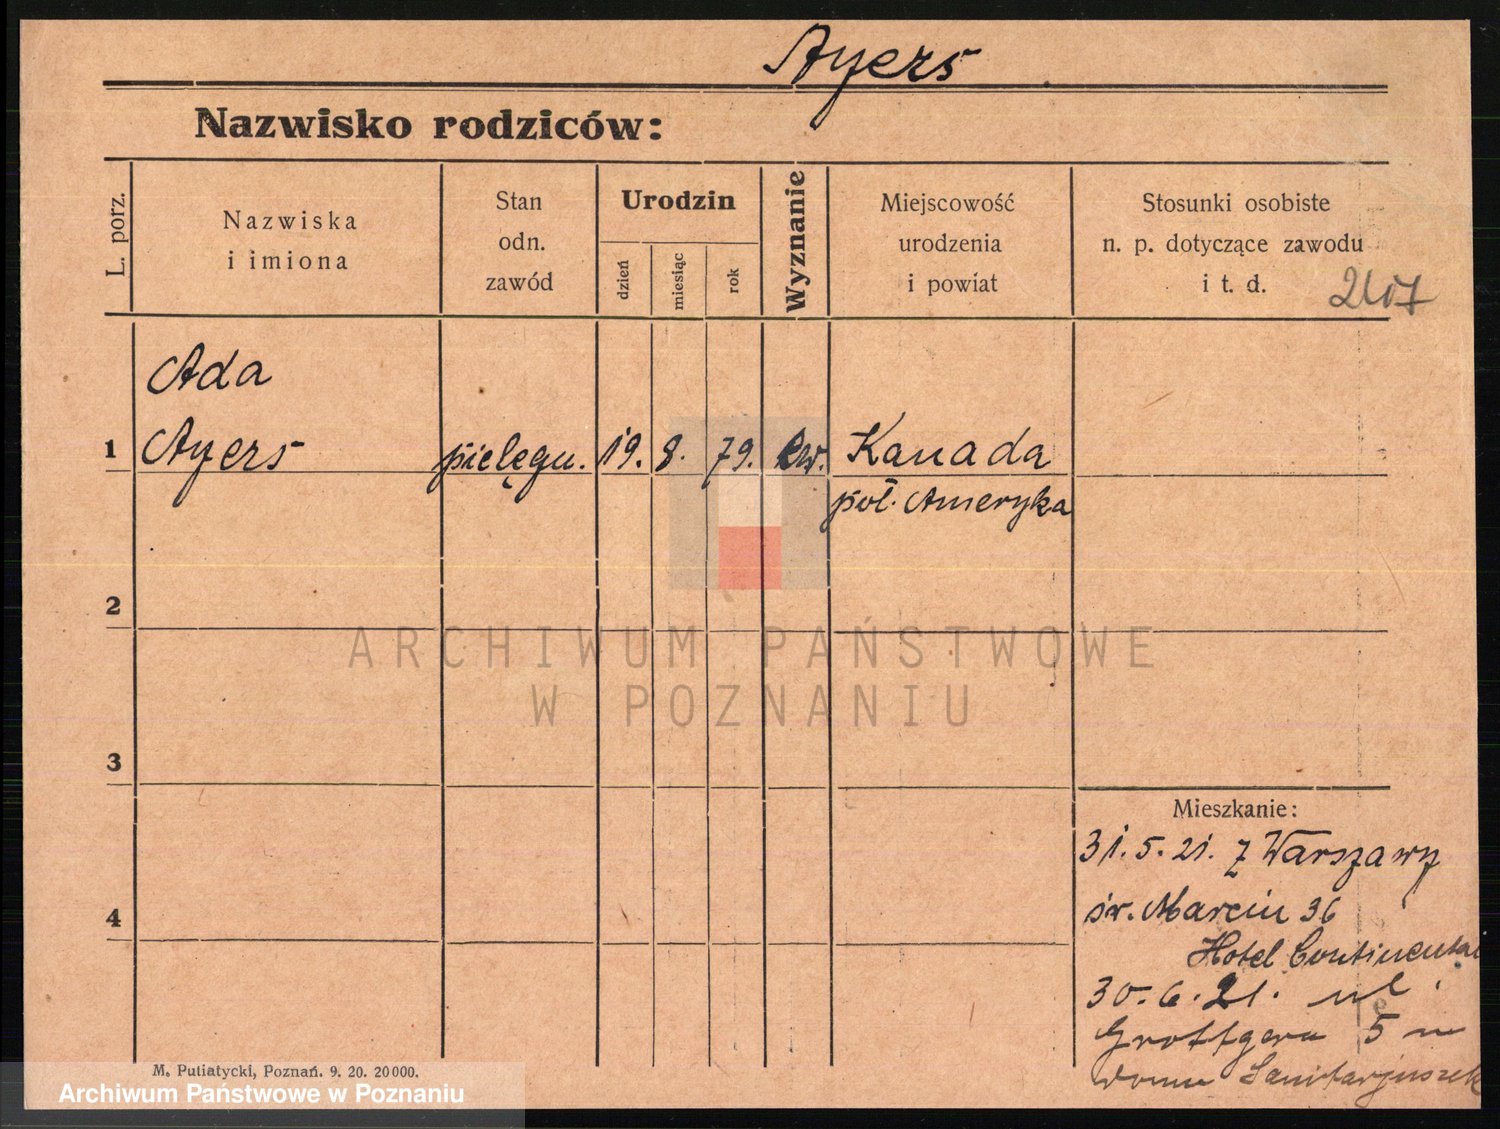 Ayers
Nazwisko rodziców:
L. porz.
Nazwiska
i imiona
Stan
odn.
zawód
Urodzin
dzień
miesiąc
rok
Wyznanie
Miejscowość
urodzenia
i powiat
Stosunki osobiste
n. p. dotyczące zawodu
i t. d.
Ada
1 Ayers pielęgn. 19. 8. 79. ew. Kanada
poł. Ameryka
2
3
4
Mieszkanie:
31. 5. 21. z Warszawy
św. Marcin 36
Hotel Continental
30. 6. 21. ul.
Grottgera 5 w
domu Sanitarjuszek
M. Putiatycki, Poznań. 9. 20. 20000.
ARCHIWUM PAŃSTWOWE
W POZNANIU
Archiwum Państwowe w Poznaniu